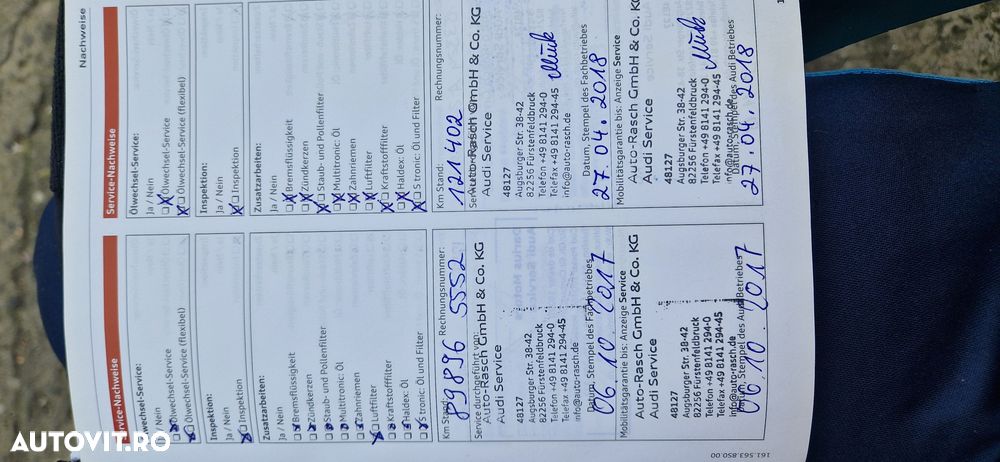 Nachweise
Service-Nachweise
Ölwechsel-Service:
Ja / Nein
Ölwechsel-Service
Ölwechsel-Service (flexibel)
Inspektion:
Ja / Nein
Inspektion
Zusatzarbeiten:
Ja / Nein
Bremsflüssigkeit
Zündkerzen
Staub- und Pollenfilter
Multitronic: Öl
Zahnriemen
Luftfilter
Kraftstofffilter
Haldex: Öl
S tronic: Öl und Filter
Km Stand: Rechnungsnummer:
89896 5552
Service durchgeführt von:
Auto-Rasch GmbH & Co. KG
Audi Service
48127
Augsburger Str. 38-42
82256 Fürstenfeldbruck
Telefon +49 8141 294-0
Telefax +49 8141 294-45
info@auto-rasch.de
Datum, Stempel des Fachbetriebes
06.10.2017
Mobilitätsgarantie bis: Anzeige Service
Auto-Rasch GmbH & Co. KG
Audi Service
48127
Augsburger Str. 38-42
82256 Fürstenfeldbruck
Telefon +49 8141 294-0
Telefax +49 8141 294-45
info@auto-rasch.de
Datum, Stempel des Audi Betriebes
06.10.2017
161.563.850.00
Service-Nachweise
Ölwechsel-Service:
Ja / Nein
Ölwechsel-Service
Ölwechsel-Service (flexibel)
Inspektion:
Ja / Nein
Inspektion
Zusatzarbeiten:
Ja / Nein
Bremsflüssigkeit
Zündkerzen
Staub- und Pollenfilter
Multitronic: Öl
Zahnriemen
Luftfilter
Kraftstofffilter
Haldex: Öl
S tronic: Öl und Filter
Km Stand: Rechnungsnummer:
121402
Auto-Rasch GmbH & Co. KG
Audi Service
48127
Augsburger Str. 38-42
82256 Fürstenfeldbruck
Telefon +49 8141 294-0
Telefax +49 8141 294-45
info@auto-rasch.de
Datum, Stempel des Fachbetriebes
27.04.2018
Mobilitätsgarantie bis: Anzeige Service
Auto-Rasch GmbH & Co. KG
Audi Service
48127
Augsburger Str. 38-42
82256 Fürstenfeldbruck
Telefon +49 8141 294-0
Telefax +49 8141 294-45
info@auto-rasch.de
Datum, Stempel des Audi Betriebes
27.04.2018
AUTOVIT.RO